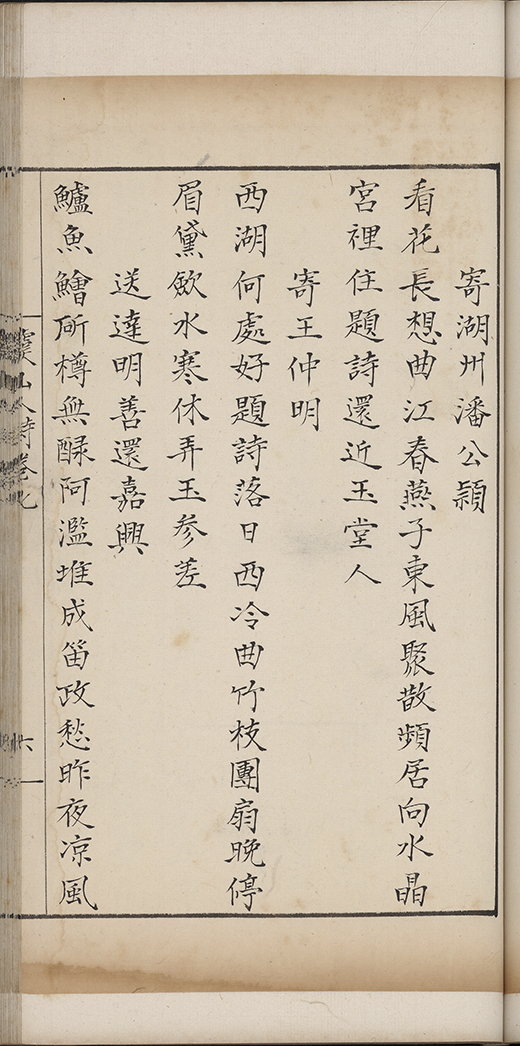 寄湖州潘公頴
看花長想曲江春燕子東風聚散頻居向水晶
宮裡住題詩還近玉堂人
寄王仲明
西湖何處好題詩落日西泠曲竹枝團扇晚停
眉黛歛水寒休弄玉参差
送達明善還嘉興
鱸魚鱠斫樽無醁阿濫堆成笛政愁昨夜凉風